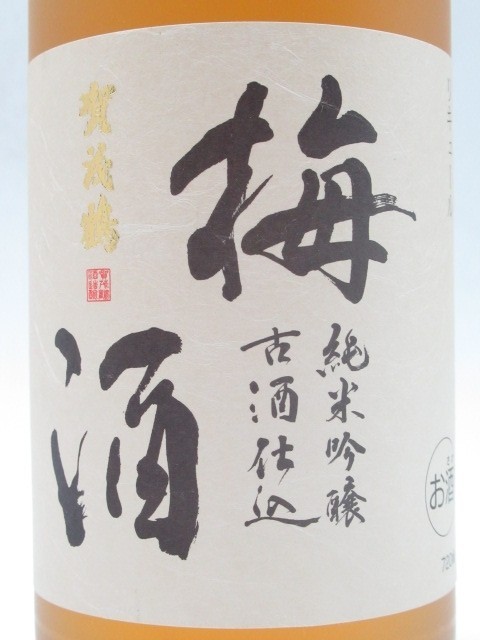 梅酒
純米吟醸
古酒仕込
賀茂鶴
お酒